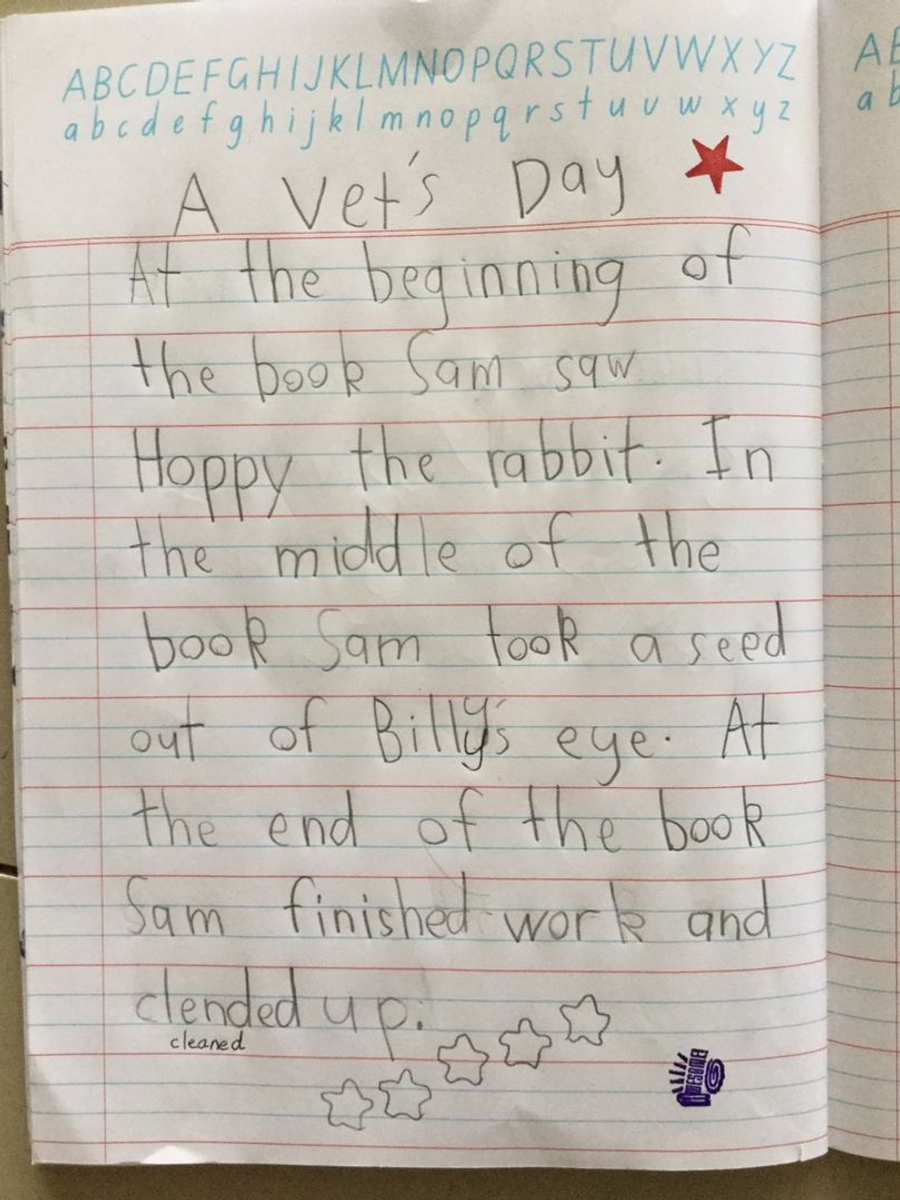 ABCDEFGHIJKLMNOPQRSTUVWXYZ
abcdefghijklmnopqrstuvwxyz
A Vet's Day
At the beginning of
the book Sam saw
Hoppy the rabbit. In
the middle of the
book Sam took a seed
out of Billy's eye. At
the end of the book
Sam finished work and
clended up.
cleaned
AWESOME
AB
ab